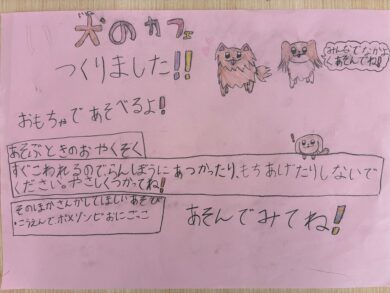 犬のカフェ
つくりました!!
みんなでなかよ
くあそんでね!
おもちゃであそべるよ!
あそぶときのおやくそく
すぐこわれるのでらんぼうにあつかったり、もちあげたりしないで
ください。やさしくつかってね!
そのほかさんかしてほしいあそび
・こうえんでポメゾンビおにごっこ
あそんでみてね!